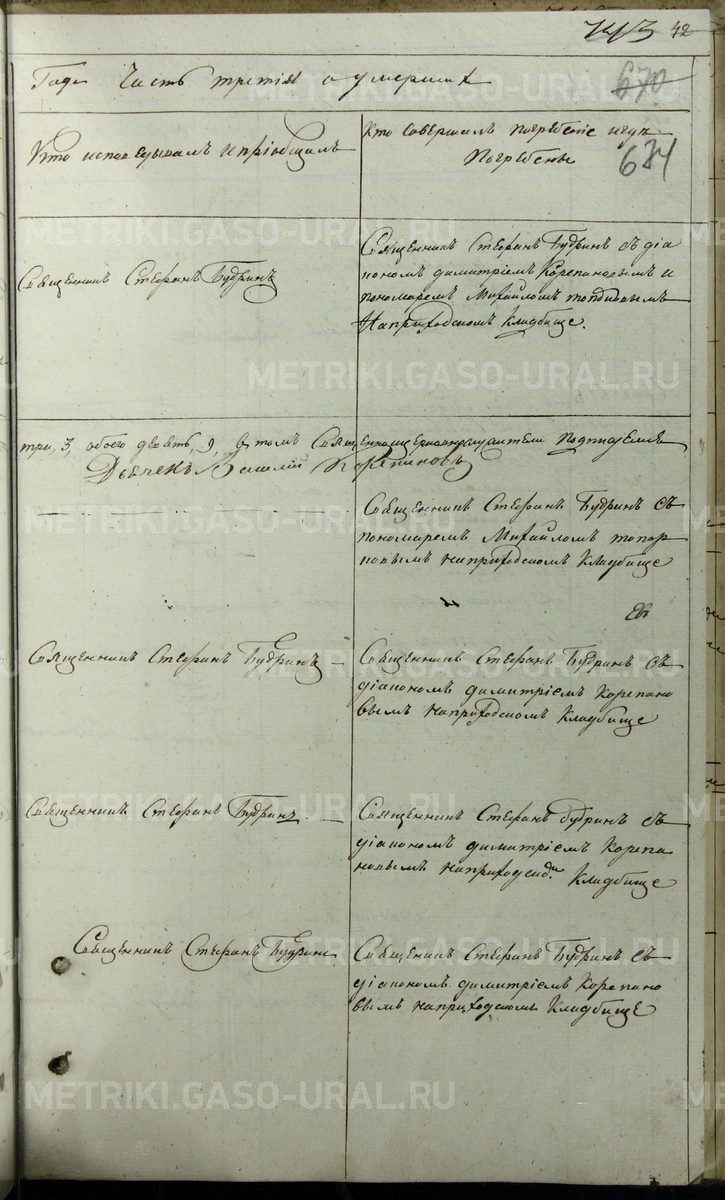 743 42
Года Часть третія о умершихъ
670
Кто исповѣдывалъ и пріобщалъ
Кто совершалъ погребеніе и гдѣ
Погребены
674
Священникъ Стефанъ Будринъ
Священникъ Стефанъ Будринъ съ діа
кономъ димитріемъ Корепановымъ и
пономаремъ Михайломъ
На приходскомъ кладбище.
три, 3, обоего девять, 9, въ томъ Священноцерковнослужители Подписуемся
Дьячекъ Василій Корепановъ
Священникъ Стефанъ Будринъ съ
пономаремъ Михайломъ топор
ковымъ на приходскомъ Кладбище
Священникъ Стефанъ Будринъ
Священникъ Стефанъ Будринъ съ
діакономъ димитріемъ Корепано
вымъ на приходскомъ Кладбище
Священникъ Стефанъ Будринъ
Священникъ Стефанъ будринъ съ
діакономъ димитріемъ Корепа
новымъ на приходско Кладбище
Священникъ Стефанъ Будринъ
Священникъ Стефанъ Будринъ съ
діакономъ димитріемъ Корепано
вымъ на приходскомъ Кладбище
METRIKI.GASO-URAL.RU